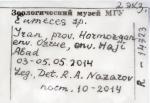 Зоологический музей МГУ
Eumeces sp.
Iran, prov. Hormozgan
env. Orzue, env. Haji
Abad
03-05.05.2014
Leg. Det. R. A. Nazarov
пост. 10-2014